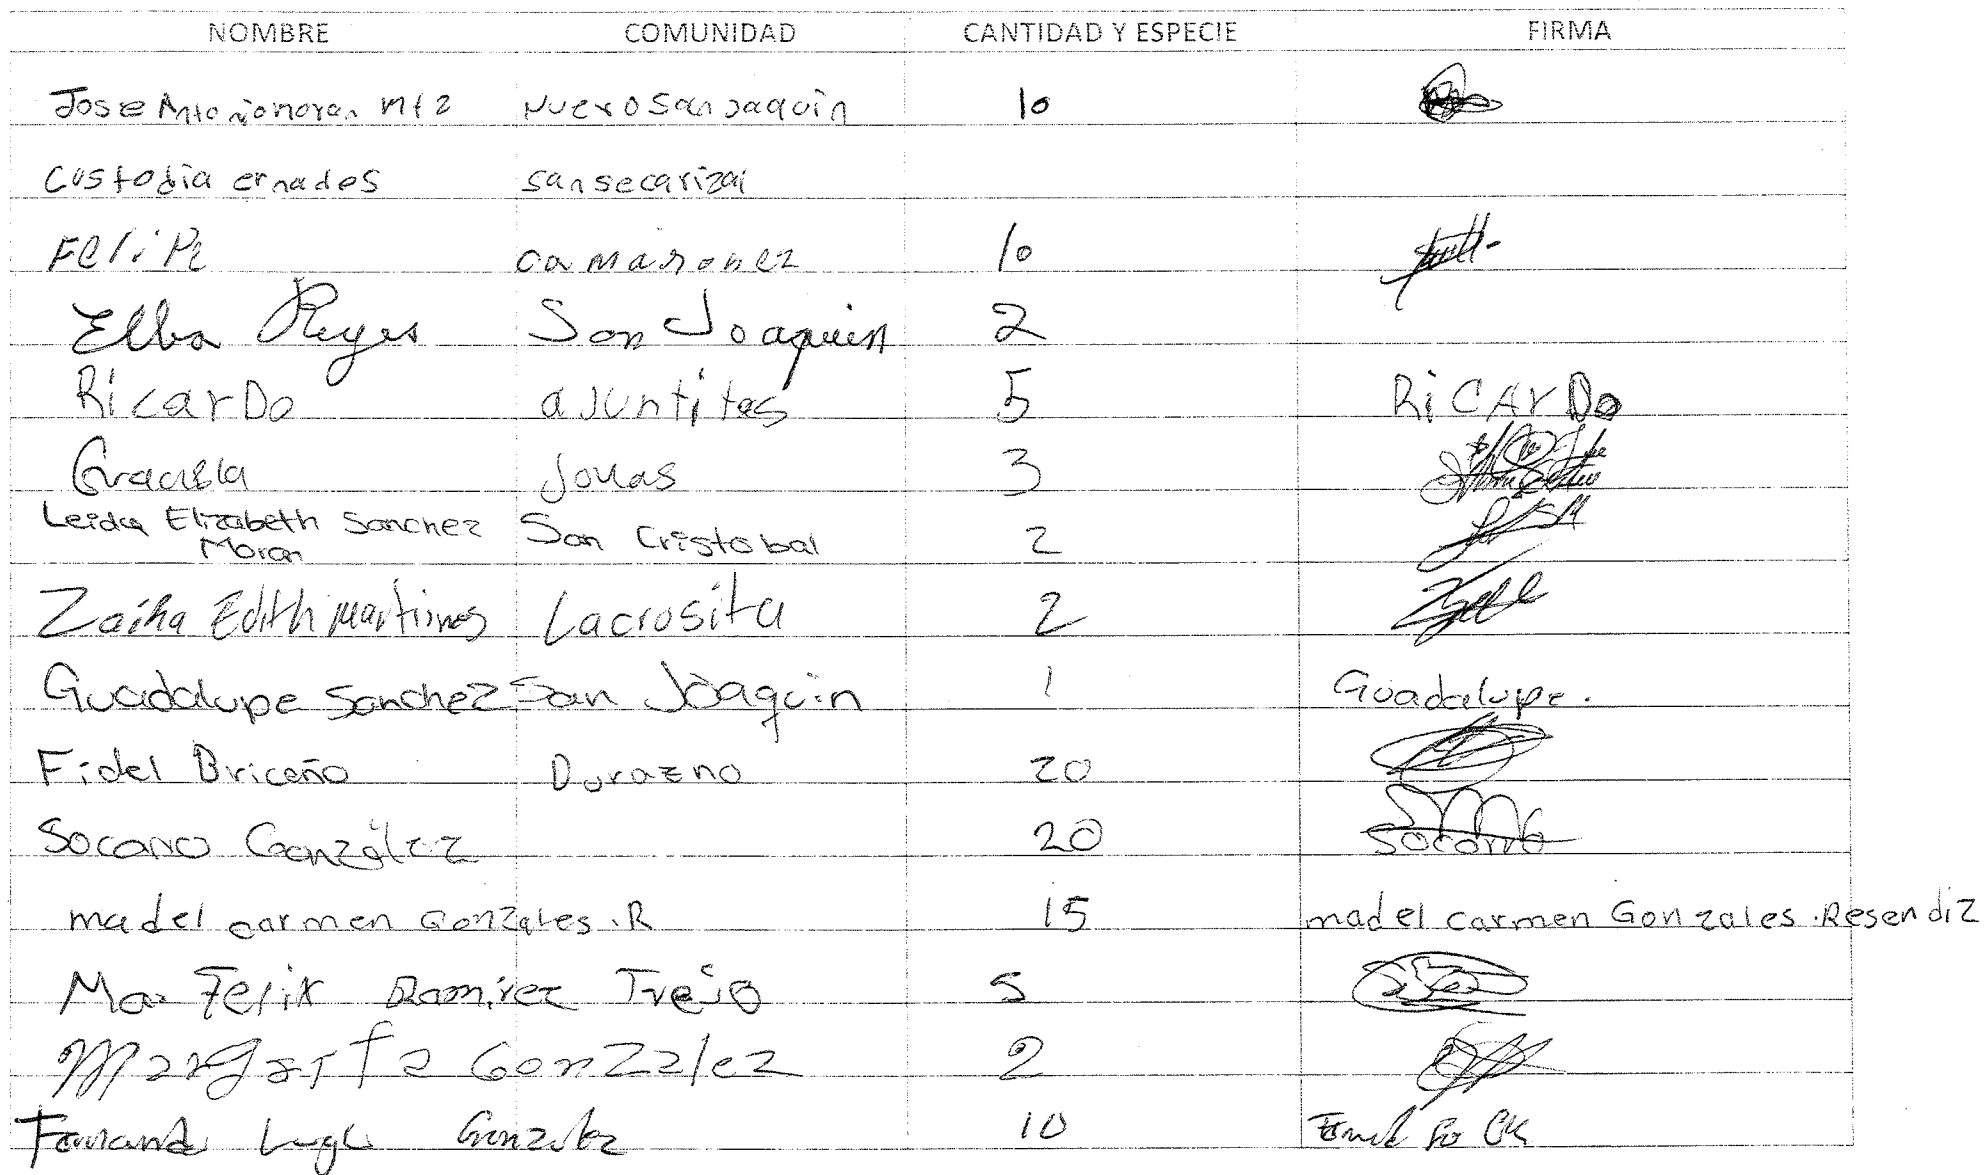 NOMBRE COMUNIDAD CANTIDAD Y ESPECIE FIRMA
Jose Antonio moran mtz nuevo san Joaquin 10
Custodia ernades sansecarizal
Felipe camaronez 10
Elba Reyes San Joaquin 2
Ricardo ajuntitas 5 RiCArDo
Graciela 3
Leida Elizabeth Sanchez San Cristobal 2
Moran
Edith Martines Lacrosita 2
Guadalupe Sanchez San Joaquin 1 Guadalupe.
Fidel Briceño Durazno 20
Socorro González 20 Socorro
ma del carmen Gonzales .R 15 ma del carmen Gonzales .Resendiz
Ma Felix Ramirez Trejo 5
Margarita Gonzalez 2
Gonzalez 10